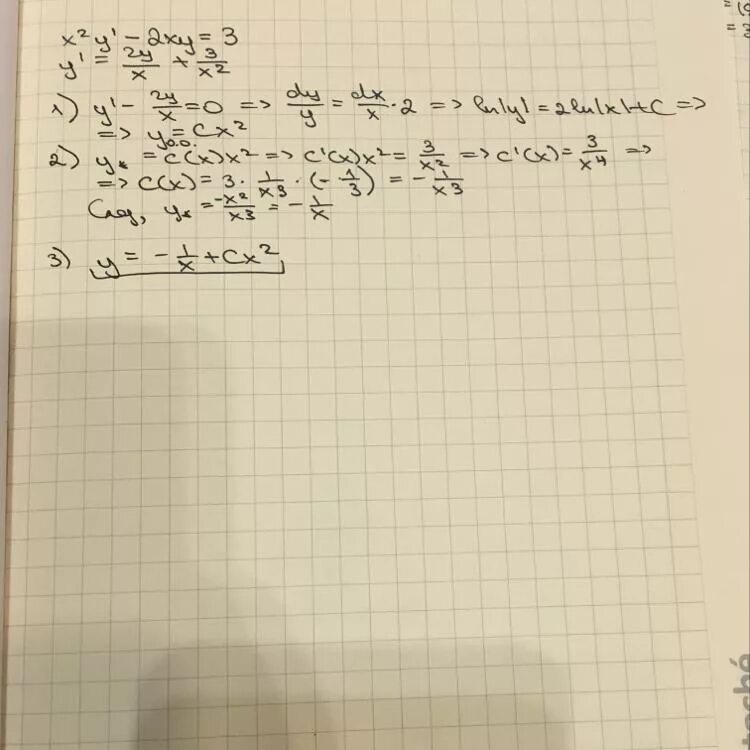 x² y' - 2xy = 3
y' = 2y/x + 3/x²
1) y' - 2y/x = 0 => dy/y = dx/x · 2 => ln|y| = 2ln|x| + C =>
=> y₀.₀. = Cx²
2) y* = C(x)x² => C'(x)x² = 3/x² => C'(x) = 3/x⁴ =>
=> C(x) = 3 · 1/x³ · (-1/3) = -1/x³
След, y* = -x²/x³ = -1/x
3) y = -1/x + Cx²